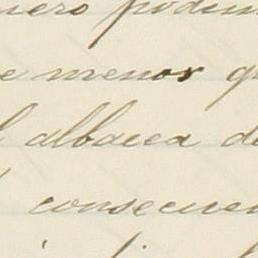 nero podem
e menor q
l albacea de
consecuen